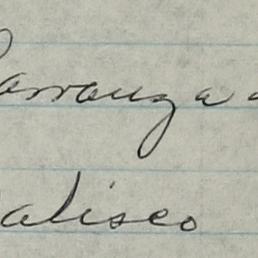 Carranza a
Jalisco